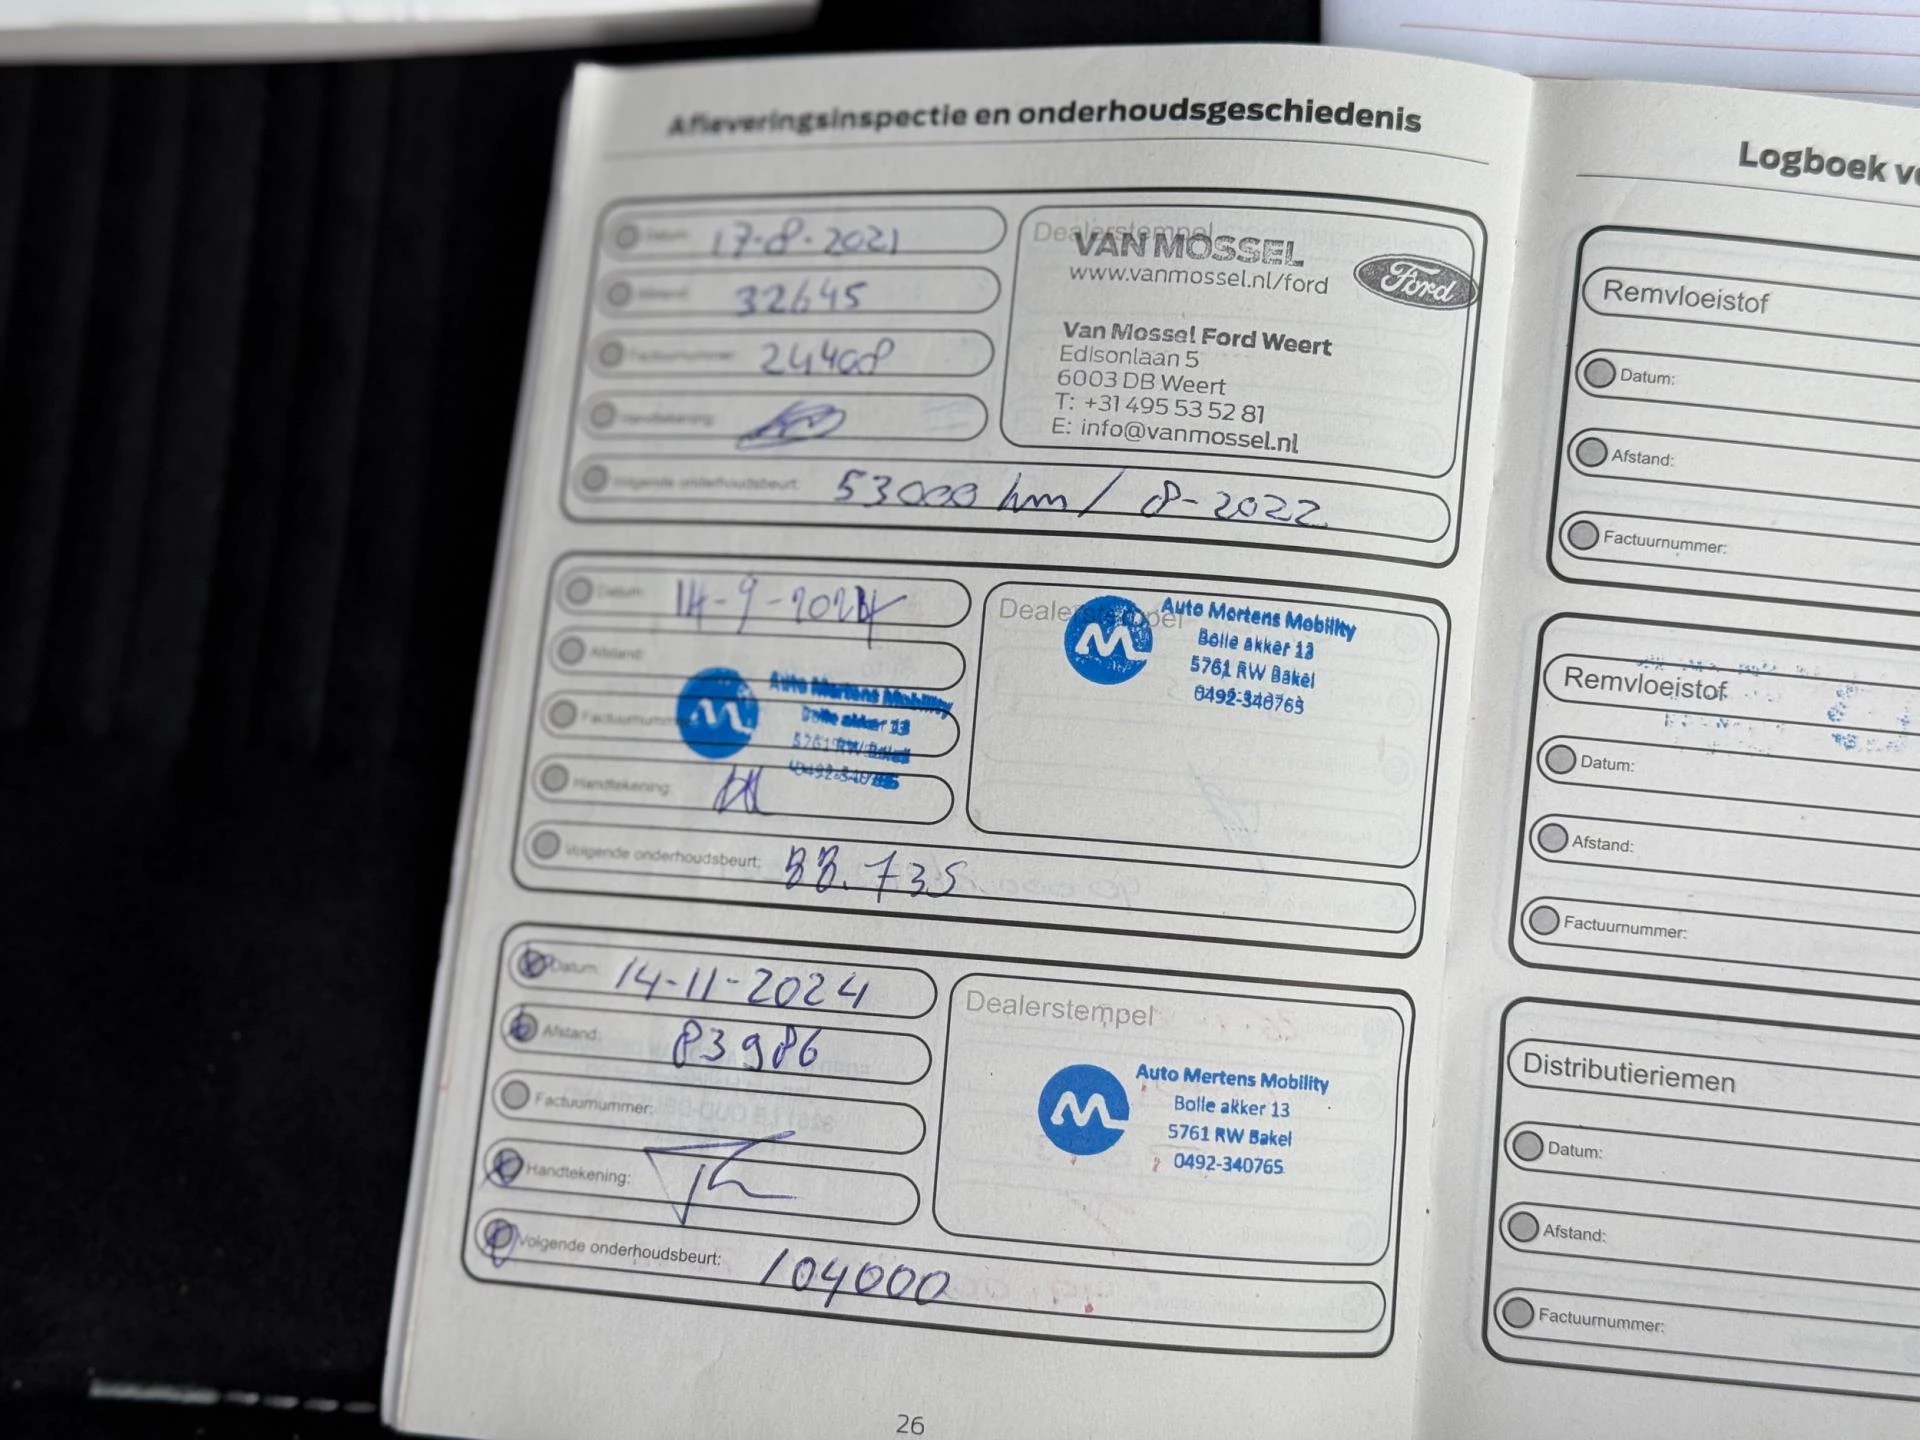 Afleveringsinspectie en onderhoudsgeschiedenis
Datum: 17-8-2021
32645
Factuurnummer: 24408
Handtekening:
Volgende onderhoudsbeurt: 53000 km / 8-2022
Dealerstempel
VAN MOSSEL
www.vanmossel.nl/ford
Ford
Van Mossel Ford Weert
Edisonlaan 5
6003 DB Weert
T: +31 495 53 52 81
E: info@vanmossel.nl
Datum: 14-9-2024
Afstand:
Factuurnummer:
Auto Mertens Mobility
Bolle akker 13
5761 RW Bakel
Handtekening:
Volgende onderhoudsbeurt:
Dealerstempel
Auto Mertens Mobility
Bolle akker 13
5761 RW Bakel
0492-340765
Datum: 14-11-2024
Afstand: 83986
Factuurnummer:
Handtekening:
Volgende onderhoudsbeurt: 104000
Dealerstempel
Auto Mertens Mobility
Bolle akker 13
5761 RW Bakel
0492-340765
26
Logboek
Remvloeistof
Datum:
Afstand:
Factuurnummer:
Remvloeistof
Datum:
Afstand:
Factuurnummer:
Distributieriemen
Datum:
Afstand:
Factuurnummer: